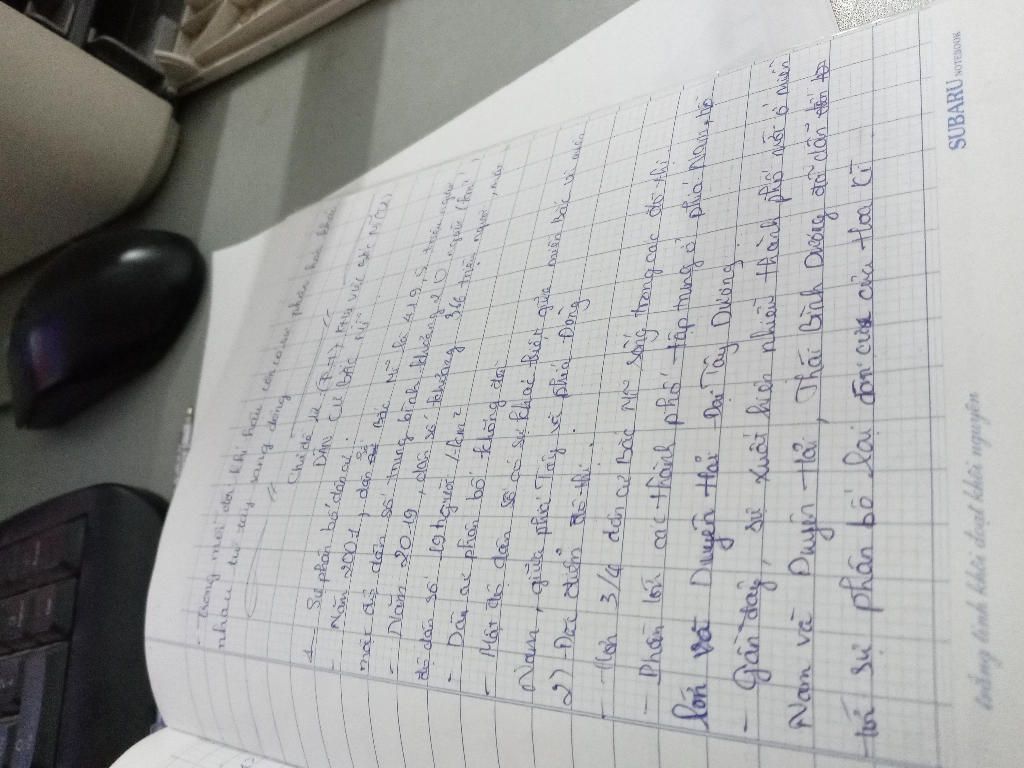 - Trong mỗi đới khí hậu còn có sự phân hoá khác
nhau từ tây sang đông
Chủ đề 12
Dân Cư Bắc Mĩ
1- Sự phân bố dân cư
- Năm 2001, dân số Bắc Mĩ là 419,5 triệu người
mật độ dân số trung bình khoảng 20 người/km²,
- Năm 2019, dân số khoảng 366 triệu người, mật
độ dân số 19 người/km²
- Dân cư phân bố không đều
- Mật độ dân số có sự khác biệt giữa miền bắc và miền
Nam, giữa phía Tây và phía Đông
2) Đặc điểm đô thị.
- Hơn 3/4 dân cư Bắc Mĩ sống trong các đô thị
- Phần lớn các thành phố tập trung ở phía Nam Hồ
lớn và Duyên Hải Đại Tây Dương
- Gần đây, sự xuất hiện nhiều thành phố mới ở miền
Nam và Duyên Hải Thái Bình Dương đã dẫn
tới sự phân bố lại dân cư của Hoa Kì
SUBARU NOTEBOOK